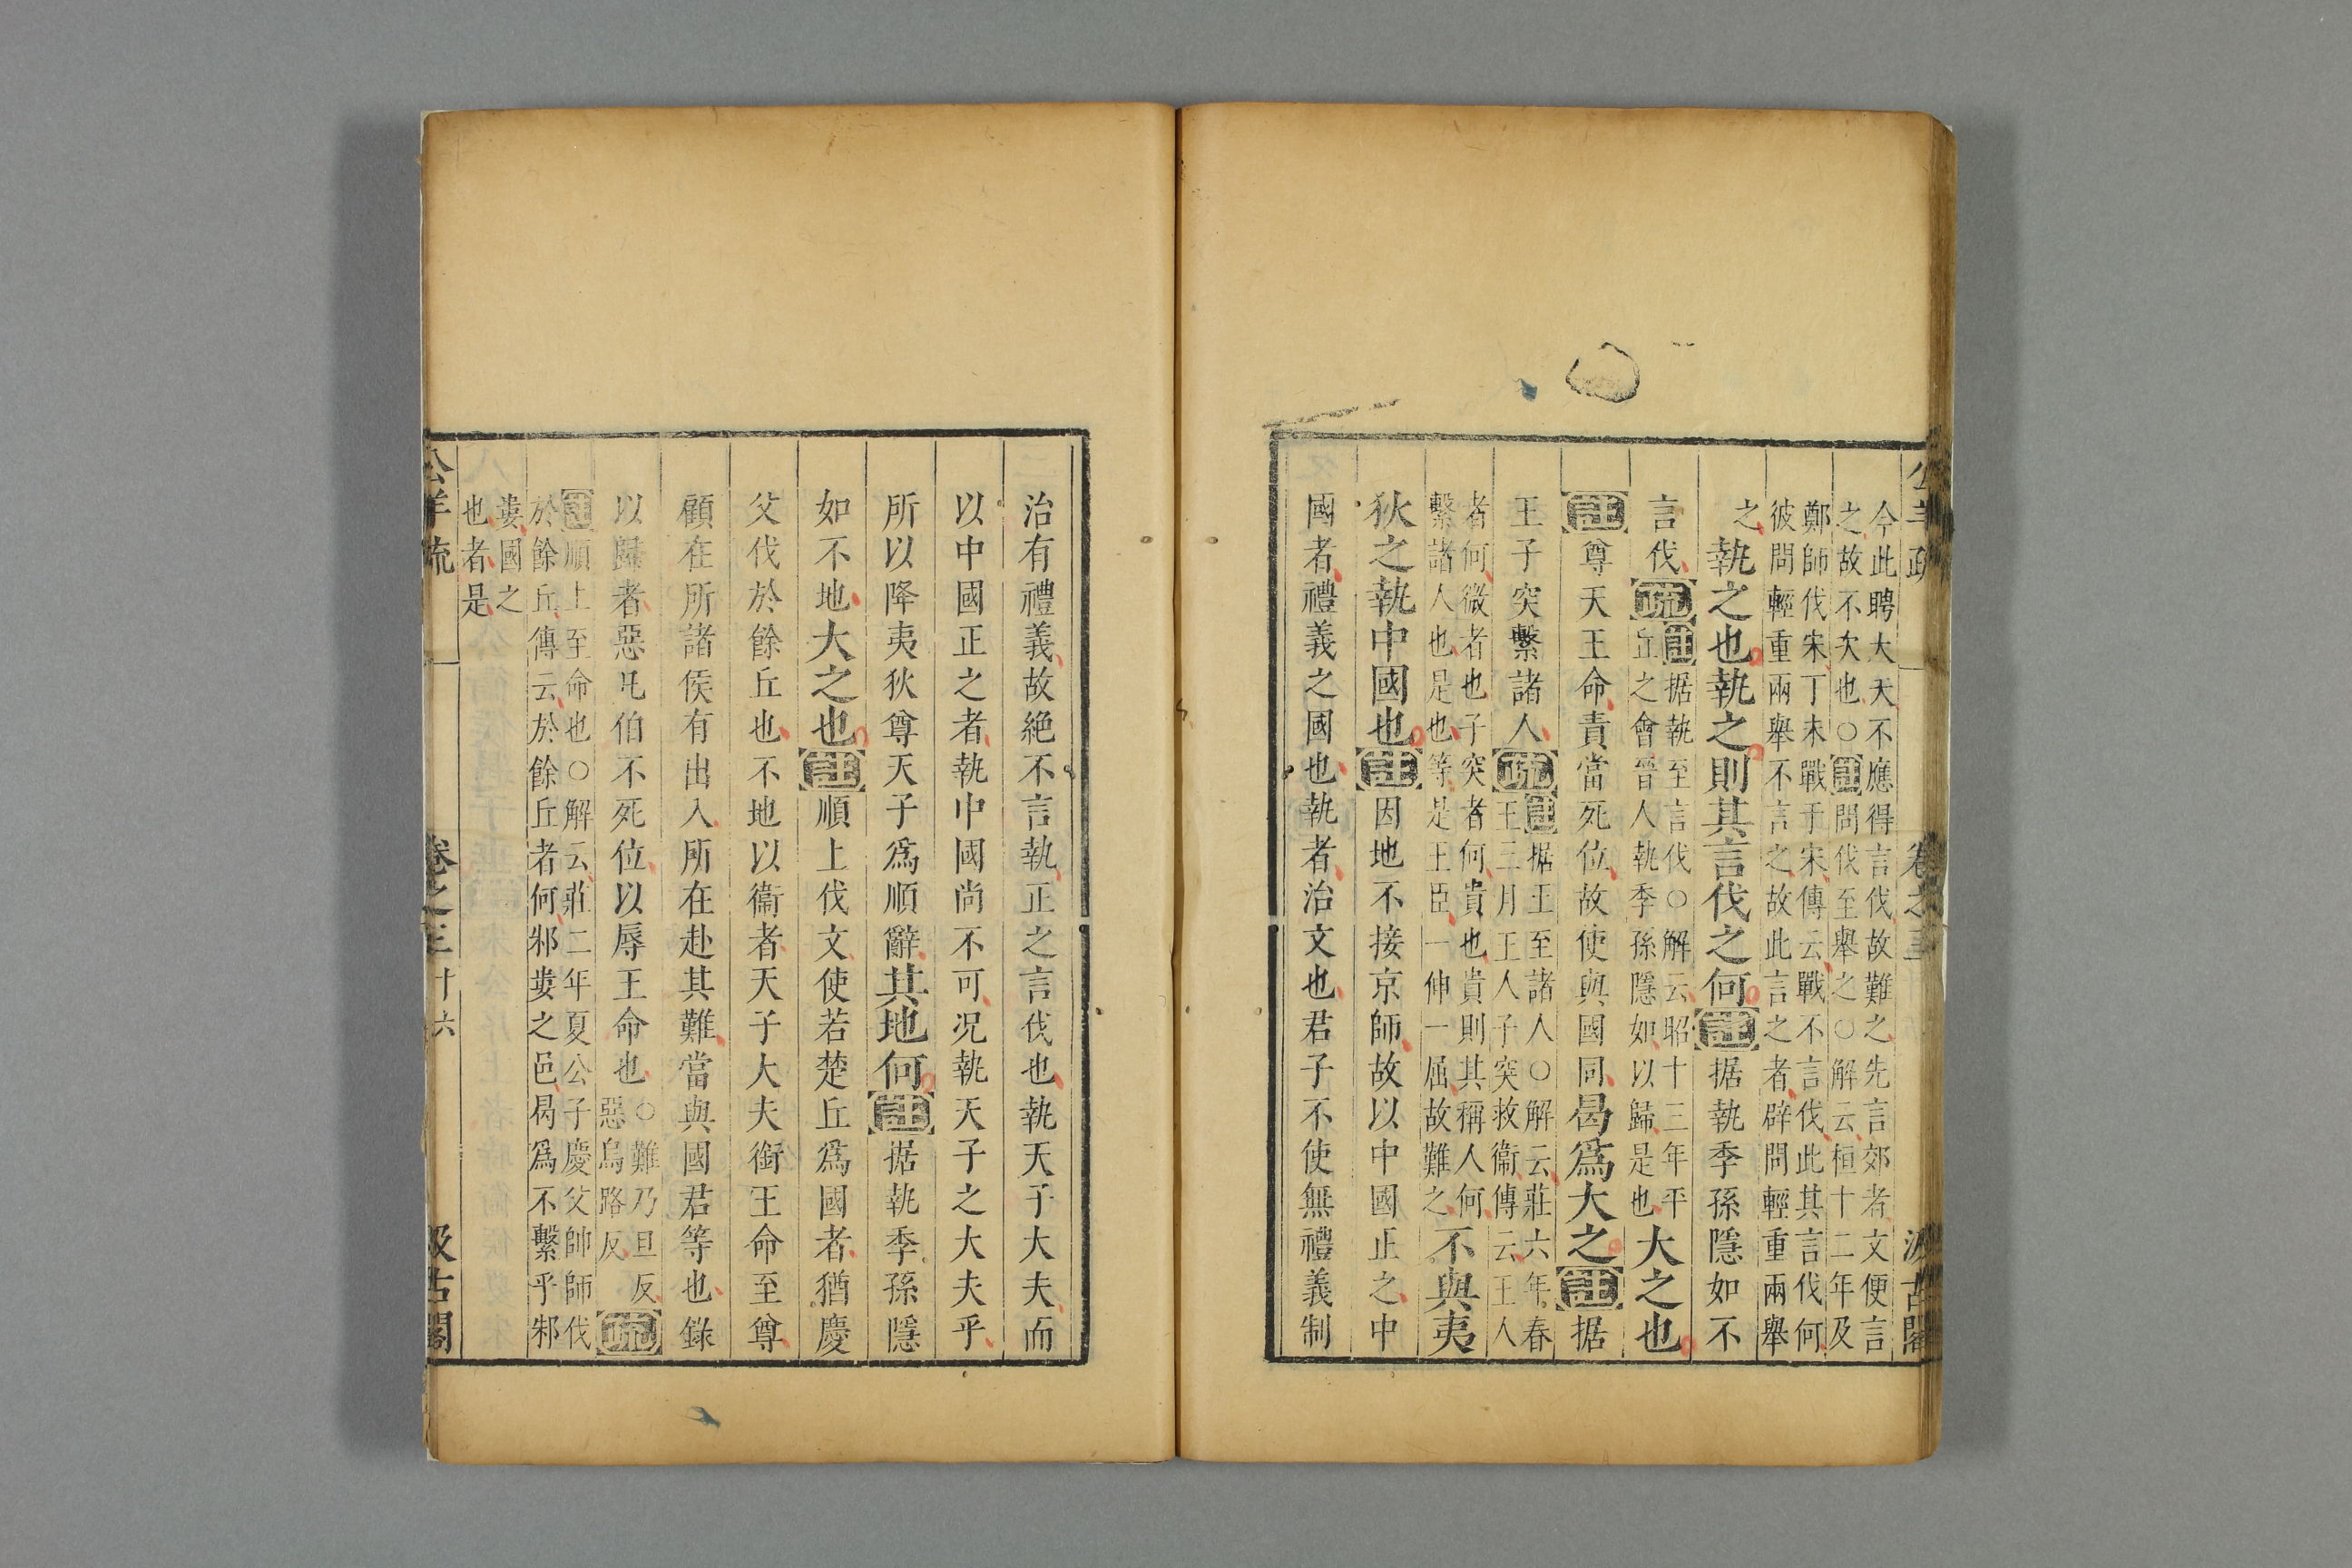 公羊疏 卷之三 汲古閣
今此聘大夫不應得言伐故難之先言郊者文便言
之故不次也○註問伐至舉之○解云桓十二年及
鄭師伐宋丁未戰于宋傳云戰不言伐此其言伐何
彼問輕重兩舉不言之故此言之者辟問輕重兩舉
之執之也執之則其言伐之何註据執季孫隱如不
言伐疏註据執至言伐○解云昭十三年平
丘之會晉人執季孫隱如以歸是也大之也
註尊天王命責當死位故使與國同曷爲大之註据
王子突繫諸人疏註据王至諸人○解云莊六年春
王三月王人子突救衞傳云王人
者何微者也子突者何貴也貴則其稱人何
繫諸人也是也等是王臣一伸一屈故難之不與夷
狄之執中國也註因地不接京師故以中國正之中
國者禮義之國也執者治文也君子不使無禮義制
治有禮義故絶不言執正之言伐也執天子大夫而
以中國正之者執中國尚不可况執天子之大夫乎
所以降夷狄尊天子爲順辭其地何註据執季孫隱
如不地大之也註順上伐文使若楚丘爲國者猶慶
父伐於餘丘也不地以衞者天子大夫銜王命至尊
顧在所諸侯有出入所在赴其難當與國君等也錄
以歸者惡凡伯不死位以辱王命也○難乃旦反
惡烏路反疏
註順上至命也○解云莊二年夏公子慶父帥師伐
於餘丘傳云於餘丘者何邾婁之邑曷爲不繫乎邾
婁國之
也者是
公羊疏 卷之三 十六 汲古閣